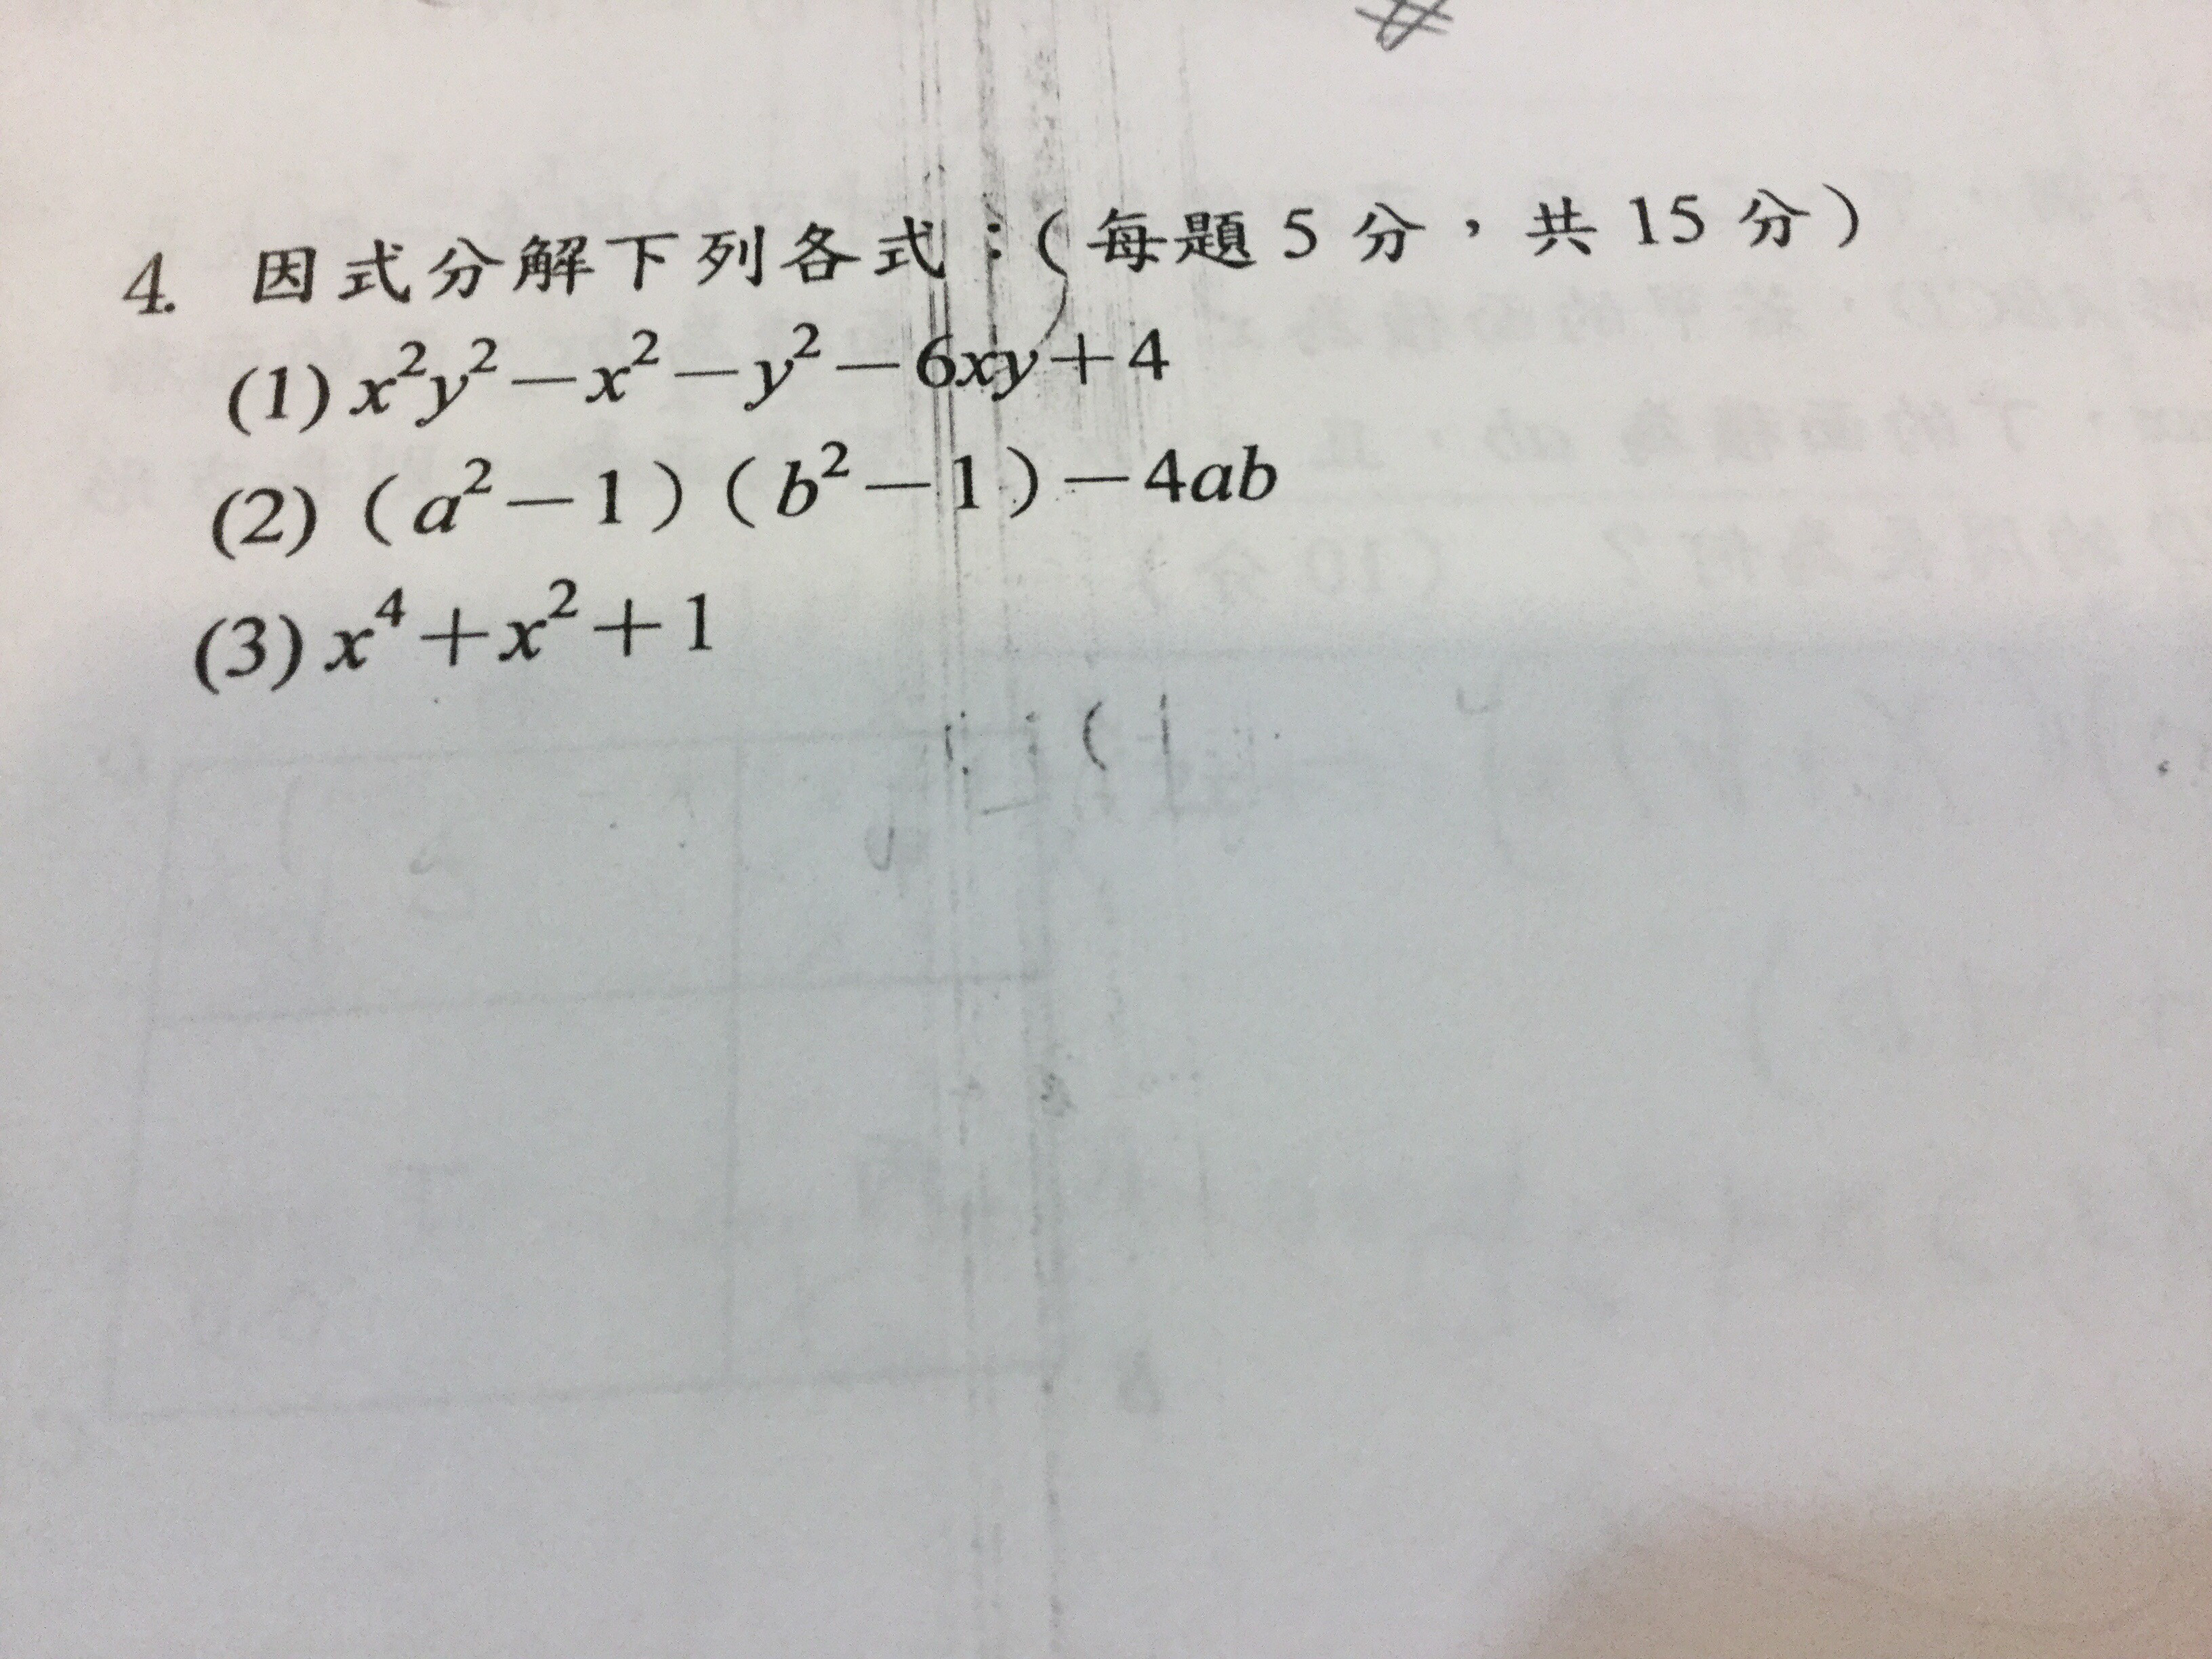 4. 因式分解下列各式：(每題5分，共15分)
(1) x²y²－x²－y²－6xy＋4
(2) (a²－1)(b²－1)－4ab
(3) x⁴＋x²＋1